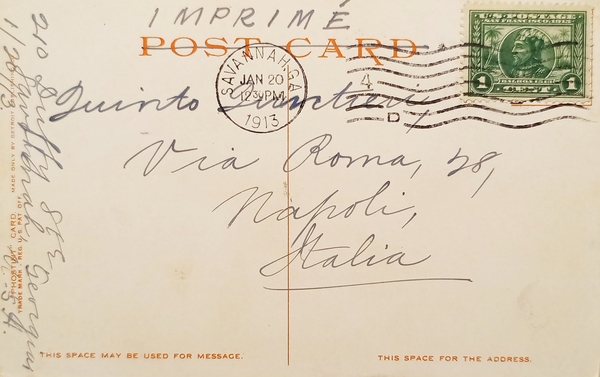 IMPRIMÉ
POST CARD
U.S. POSTAGE
SAN FRANCISCO, 1915
BALBOA 1513
1 CENT 1
SAVANNAH, GA.
JAN 20
12 30 PM
1913
4
D
Quinto
Via Roma, 28,
Napoli,
Italia
210 Duffy St E
Savannah, Georgia
U.S.A.
1/20
"PHOSTINT" CARD
TRADE MARK REG. U.S. PAT. OFF.
MADE ONLY BY DETROIT
THIS SPACE MAY BE USED FOR MESSAGE.
THIS SPACE FOR THE ADDRESS.